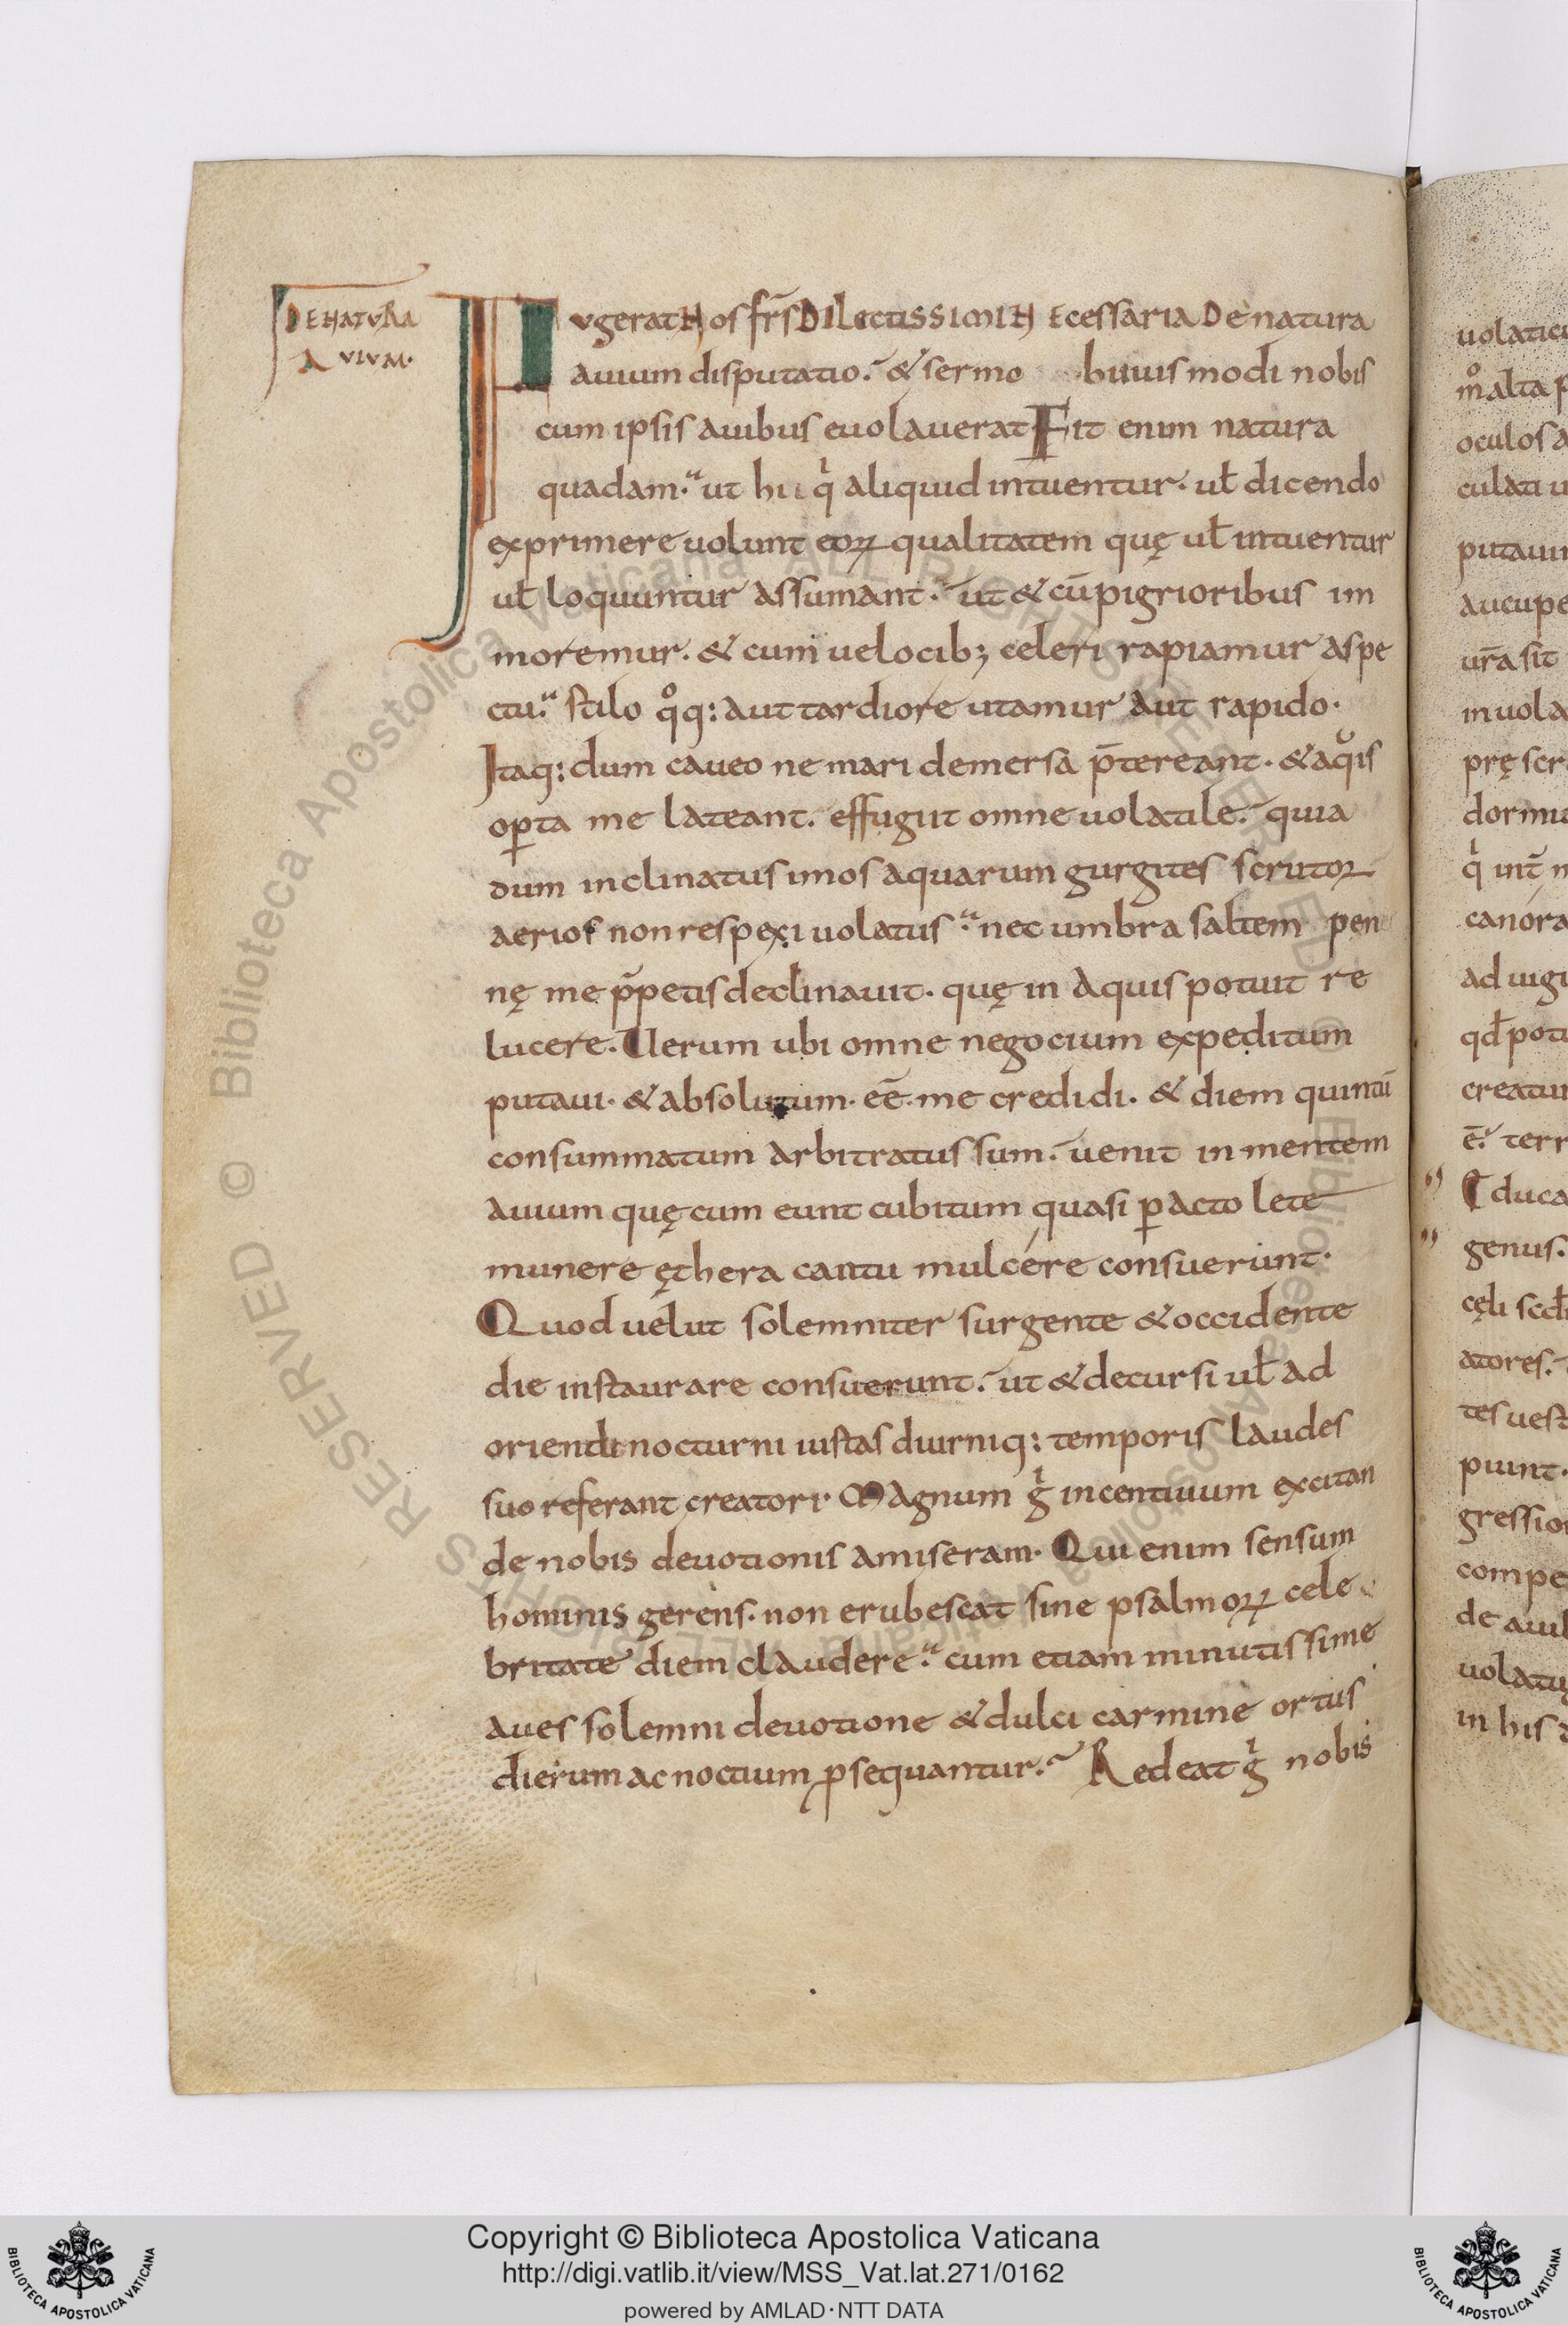 DE NATURA
AVIUM.
Fugerat nos fr̄s dilectissimi necessaria de natura
avium disputatio. & sermo huius modi nobis
cum ipsis avibus evolaverat Fit enim natura
quadam. ut hii qͥ aliquid intuentur. ul̄ dicendo
exprimere uolunt eoꝝ qualitatem quę ul̄ intuentur
ul̄ loquuntur assumant. ut & cū pigrioribus im
moremur. & cum uelocibꝫ celeri rapiamur aspe
ctu. stilo qͦq: aut tardiore utamur aut rapido.
Itaq: dum caueo ne mari demersa p̄tereant. & aqͥs
oꝑta me lateant. effugiit omne uolatile. quia
dum inclinatus imos aquarum gurgites scrutoꝝ
aerios non respexi uolatus nec umbra saltem pen
nę me p̄petis declinauit. quę in aquis potuit re
lucere. Uerum ubi omne negocium expeditum
putaui. & absolutum. eē. me credidi. & diem quintū
consummatum arbitratus sum. uenit in mentem
auium quę cum eunt cubitum quasi ꝑacto lete
munere ęthera cantu mulcére consuerunt.
Quod uélut solemniter surgente & occidente
die instaurare consuerunt. ut & decursi ul̄ ad
oriendi nocturni iustas diurniq: temporis laudes
suo referant creatori. Magnum gͥ incentiuum excitan
de nobis deuotionis amiseram. Qui enim sensum
hominis gerens. non erubescat sine psalmoꝝ cele
britate diem claudere. cum etiam minutissime
aues solemni deuotione & dulci carmine ortus
dierum ac noctium ꝓsequantur. Redeat gͥ nobis
uolatic
mͦ alta s
oculos a
culati u
putaui
aucupe
ur̄a sit
in uola
pręscr
dormi
qͥ int̄ n
canóra
ad uigi
qd̄ potu
creatur
ē. terr
Educa
genus.
cęli scd̄
atores.
tes uest
piunt.
gressio
compe
de auib
uolatu
in his
Copyright © Biblioteca Apostolica Vaticana
http://digi.vatlib.it/view/MSS_Vat.lat.271/0162
powered by AMLAD·NTT DATA
BIBLIOTECA APOSTOLICA VATICANA
BIBLIOTECA APOSTOLICA VATICANA
© Biblioteca Apostolica Vaticana ALL RIGHTS RESERVED © Biblioteca Apostolica Vaticana ALL RIGHTS RESERVED